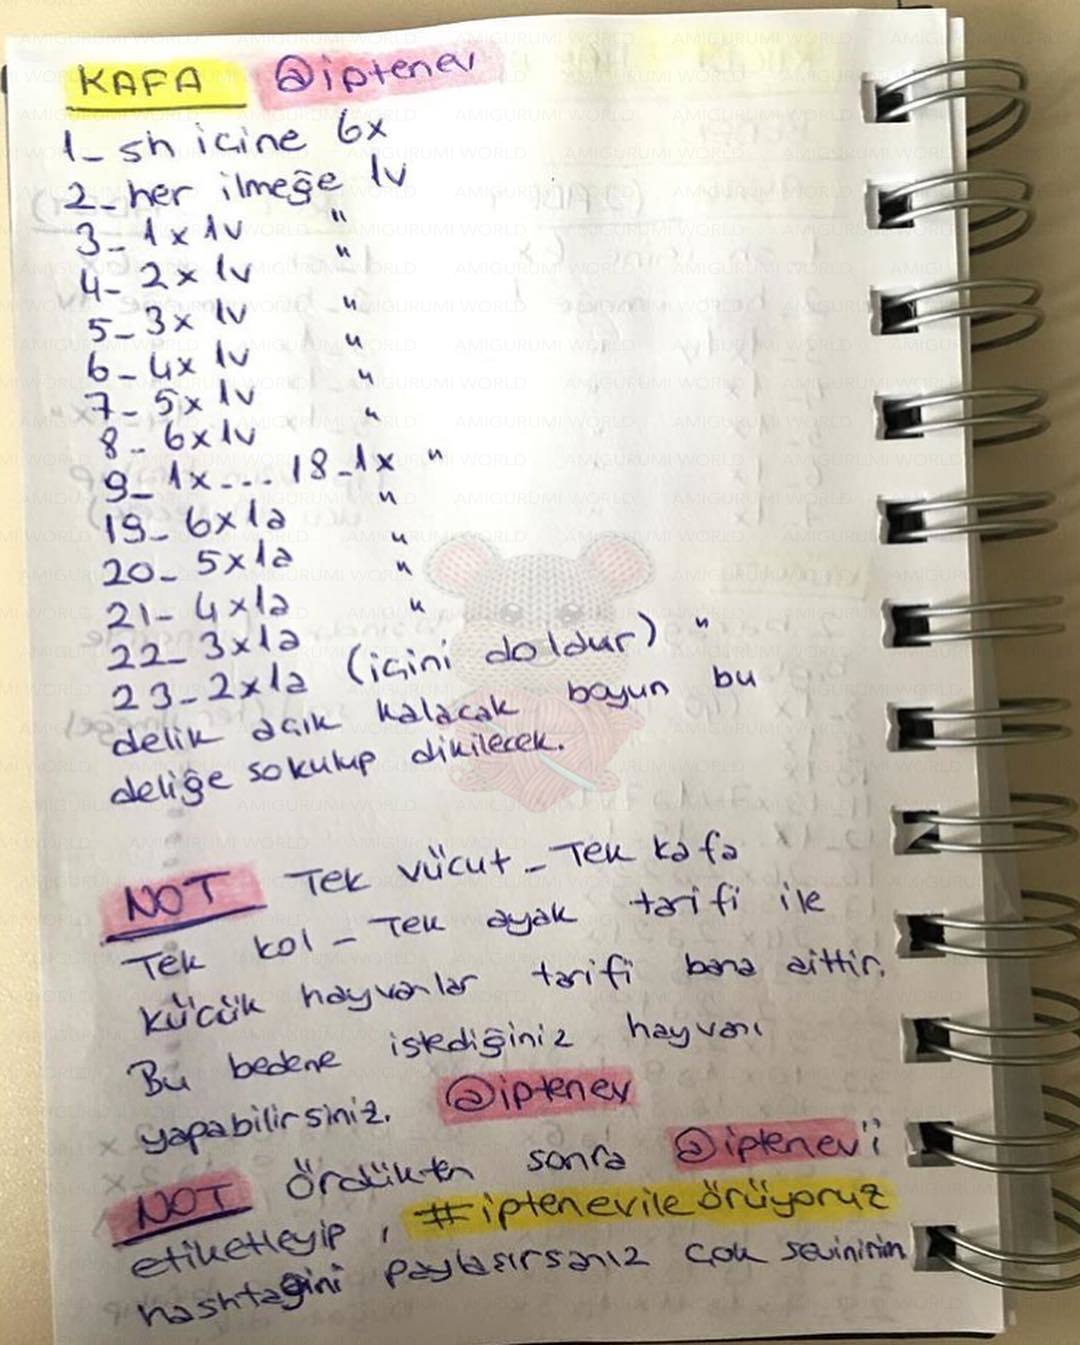 KAFA @iptenev
1- sh icine 6x
2- her ilmeğe 1v
3- 1x 1v "
4- 2x 1v "
5- 3x 1v "
6- 4x 1v "
7- 5x 1v "
8- 6x1v "
9- 1x .... 18-1x "
19- 6x1a "
20- 5x1a "
21- 4x1a "
22- 3x1a "
23- 2x1a (içini doldur) "
delik açık kalacak boyun bu
deliğe sokulup dikilecek.
NOT Tek vücut - Tek kafa
Tek kol - Tek ayak tarifi ile
küçük hayvanlar tarifi bana aittir.
Bu bedene istediğiniz hayvanı
yapabilirsiniz. @iptenev
NOT Ördükten sonra @iptenev'i
etiketleyip, #iptenevileörüyoruz
hashtagini paylaşırsanız çok sevinirim
AMIGURUMI WORLD